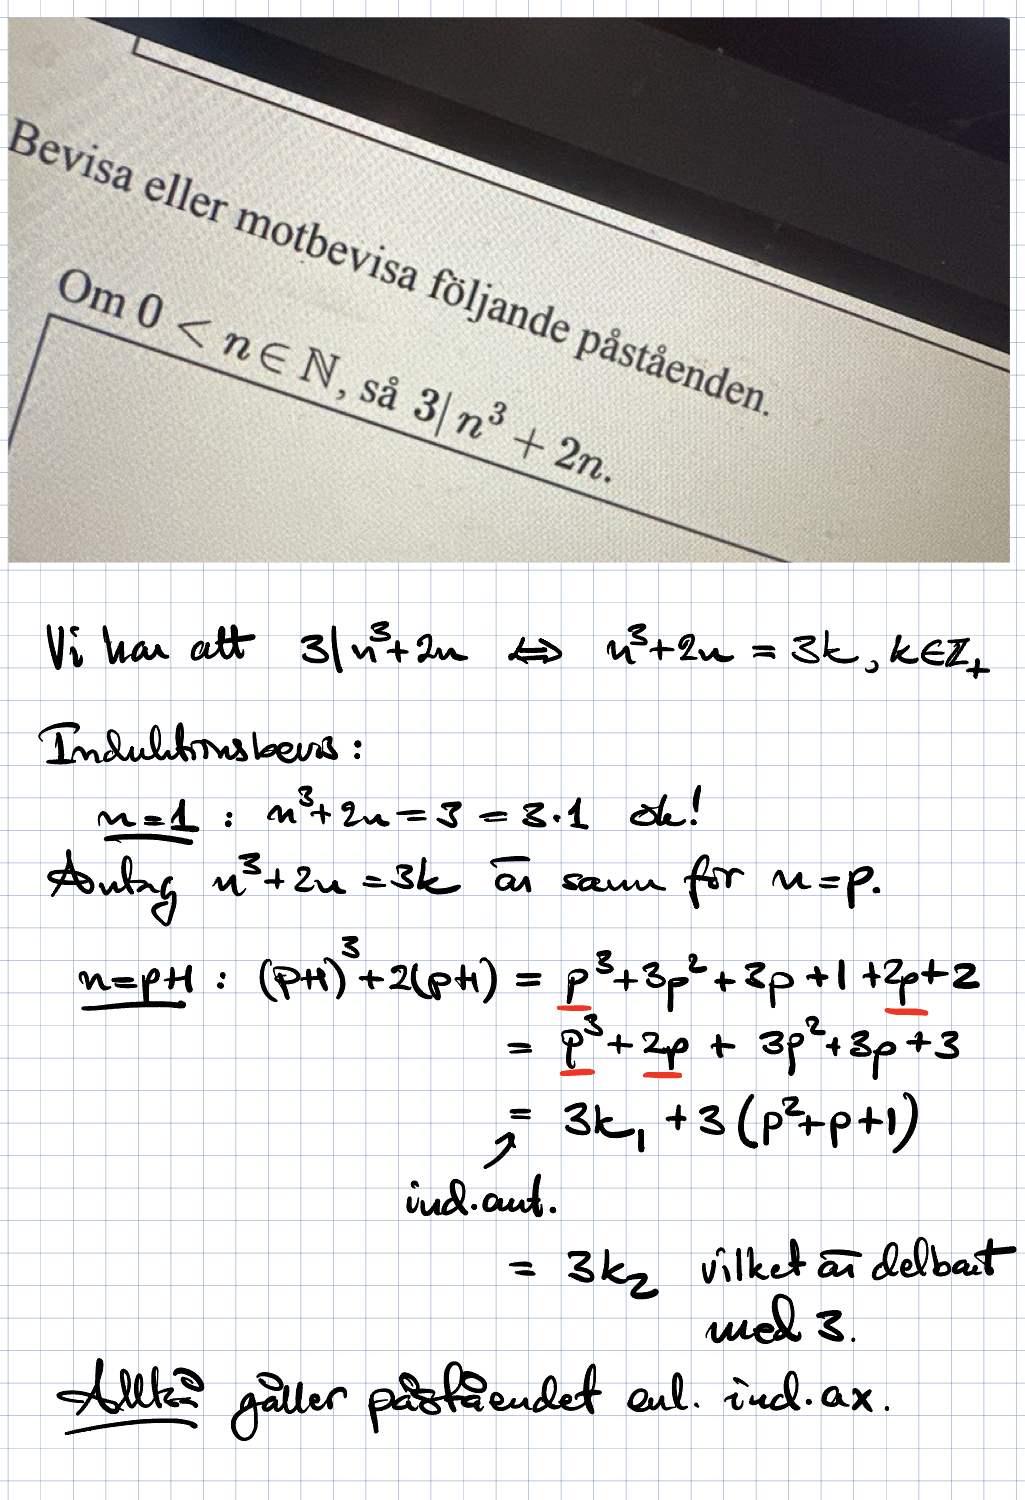 Bevisa eller motbevisa följande påståenden.
Om 0 < n ∈ ℕ, så 3|n³ + 2n.
Vi har att 3|n³+2n ⇔ n³+2n = 3k, k∈ℤ₊
Induktionsbevis:
n=1 : n³+2n = 3 = 3·1 ok!
Antag n³+2n = 3k är sann för n=p.
n=p+1 : (p+1)³+2(p+1) = p³+3p²+3p+1+2p+2
= p³+2p + 3p²+3p+3
= 3k₁ + 3(p²+p+1)
ind.ant.
= 3k₂ vilket är delbart
med 3.
Alltså gäller påståendet enl. ind.ax.